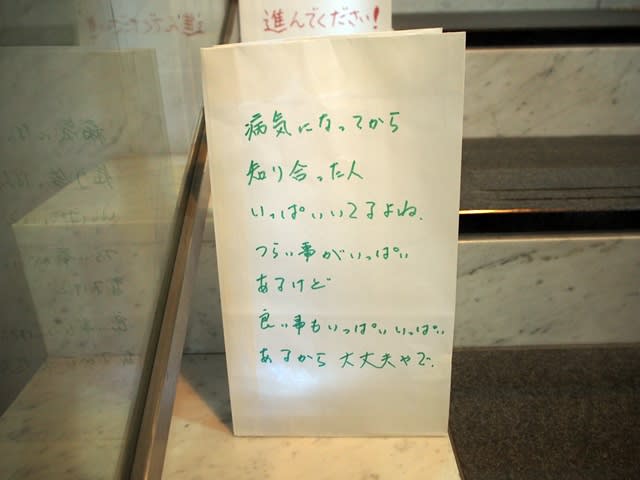 進んでください!
病気になってから
知り合った人
いっぱいいてるよね、
つらい事がいっぱい
あるけど
良い事もいっぱいいっぱい
あるから 大丈夫やで。